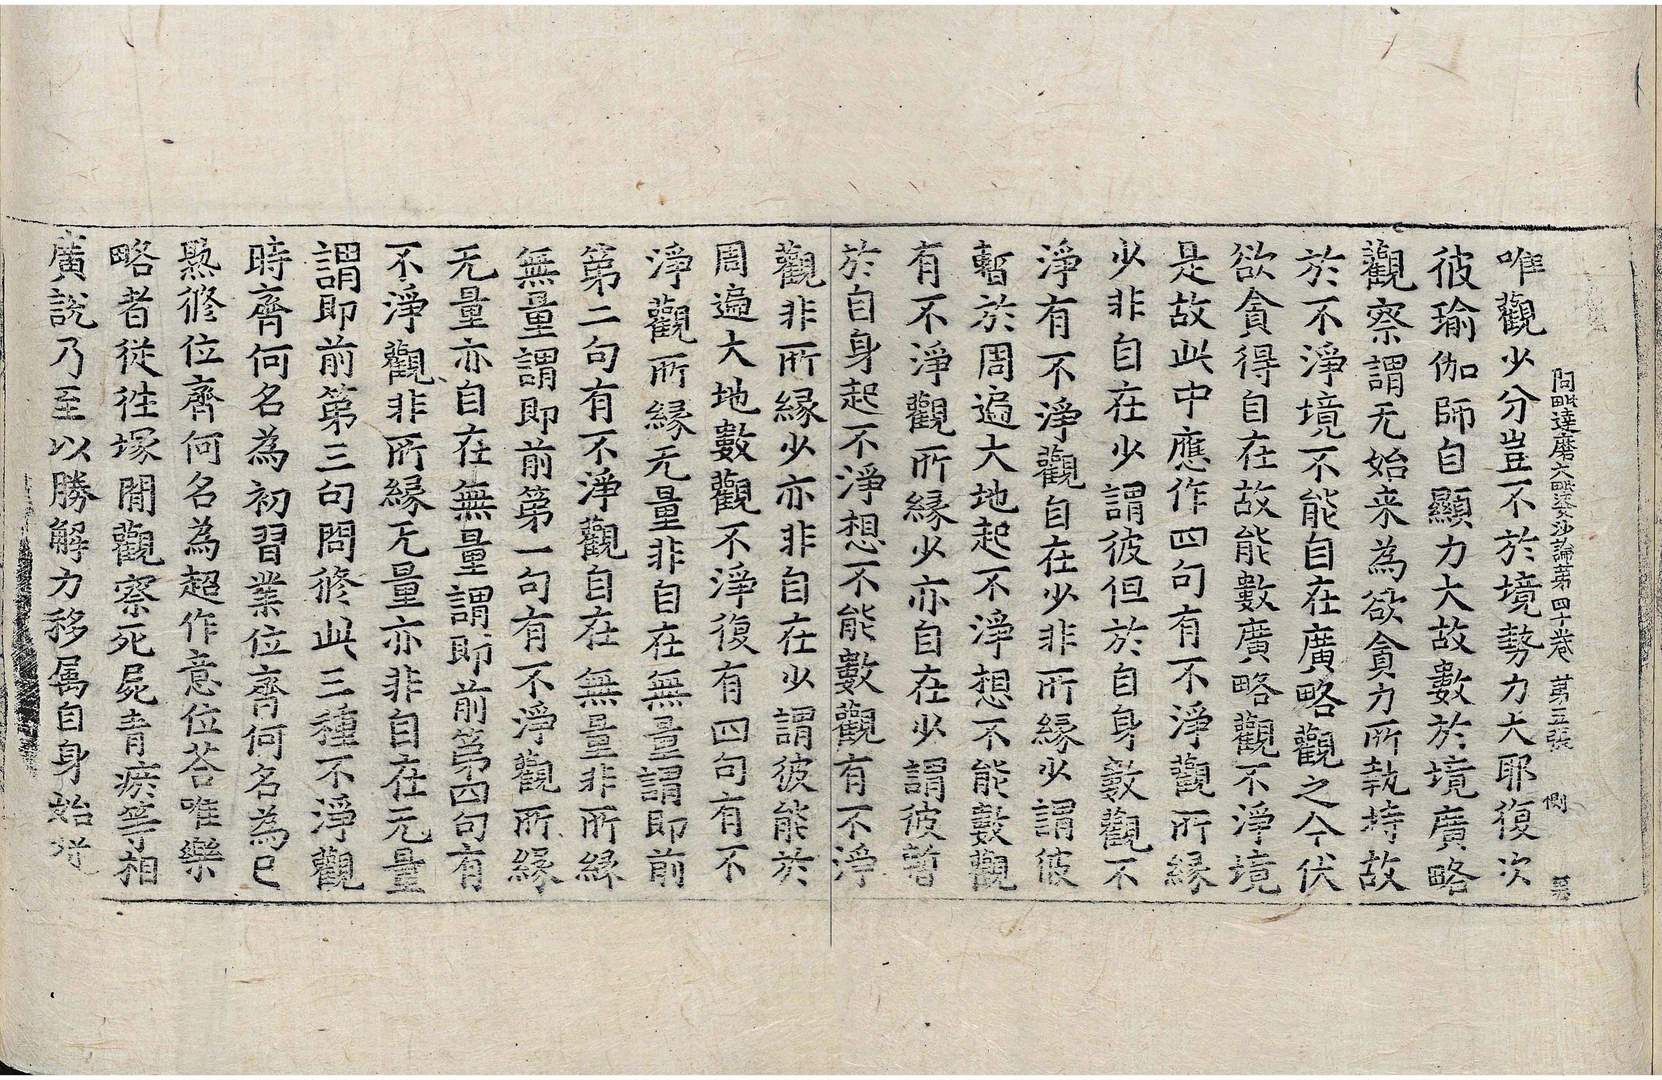 阿毗達磨大毗婆沙論第四十卷 第三張 惻
唯觀少分豈不於境勢力大耶復次
彼瑜伽師自顯力大故數於境廣略
觀察謂无始来為欲貪力所執持故
於不淨境不能自在廣略觀之今伏
欲貪得自在故能數廣略觀不淨境
是故此中應作四句有不淨觀所緣
少非自在少謂彼但於自身數觀不
淨有不淨觀自在少非所緣少謂彼
暫於周遍大地起不淨想不能數觀
有不淨觀所緣少亦自在少謂彼暫
於自身起不淨想不能數觀有不淨
觀非所緣少亦非自在少謂彼能於
周遍大地數觀不淨復有四句有不
淨觀所緣无量非自在無量謂即前
第二句有不淨觀自在無量非所緣
無量謂即前第一句有不淨觀所緣
无量亦自在無量謂即前第四句有
不淨觀非所緣无量亦非自在无量
謂即前第三句問修此三種不淨觀
時齊何名為初習業位齊何名為已
熟修位齊何名為超作意位荅唯樂
略者從往塚間觀察死屍青瘀等相
廣說乃至以勝解力移属自身始從